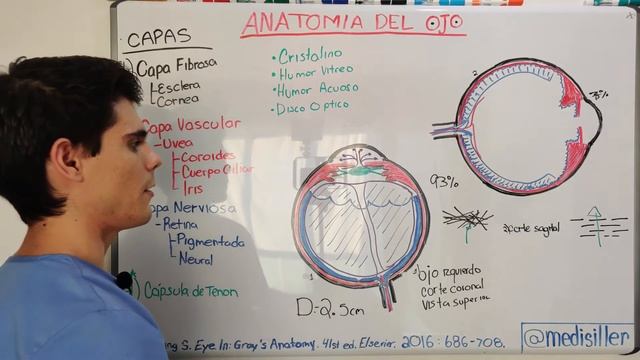 ANATOMIA DEL OJO
CAPAS
Capa Fibrosa
Esclera
Cornea
Capa Vascular
- Uvea
Coroides
Cuerpo Ciliar
Iris
Nerviosa
- Retina
Pigmentada
Neural
Cápsula de Tenon
• Cristalino
• Humor Vitreo
• Humor Acuoso
• Disco Optico
2
7%
93%
corte sagital
1
D=2.5cm
ojo izquierdo
corte coronal
vista superior
S. Eye In: Gray's Anatomy. 41st ed. Elsevier. 2016:686-708.
@medisiller